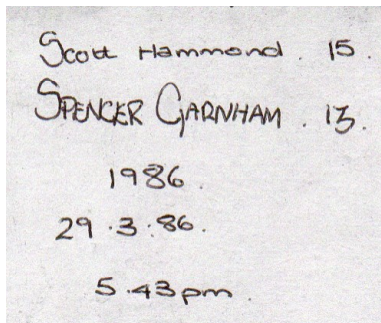 Scott Hammond. 15.
SPENCER GARNHAM. 13.
1986.
29.3.86.
5.43pm.